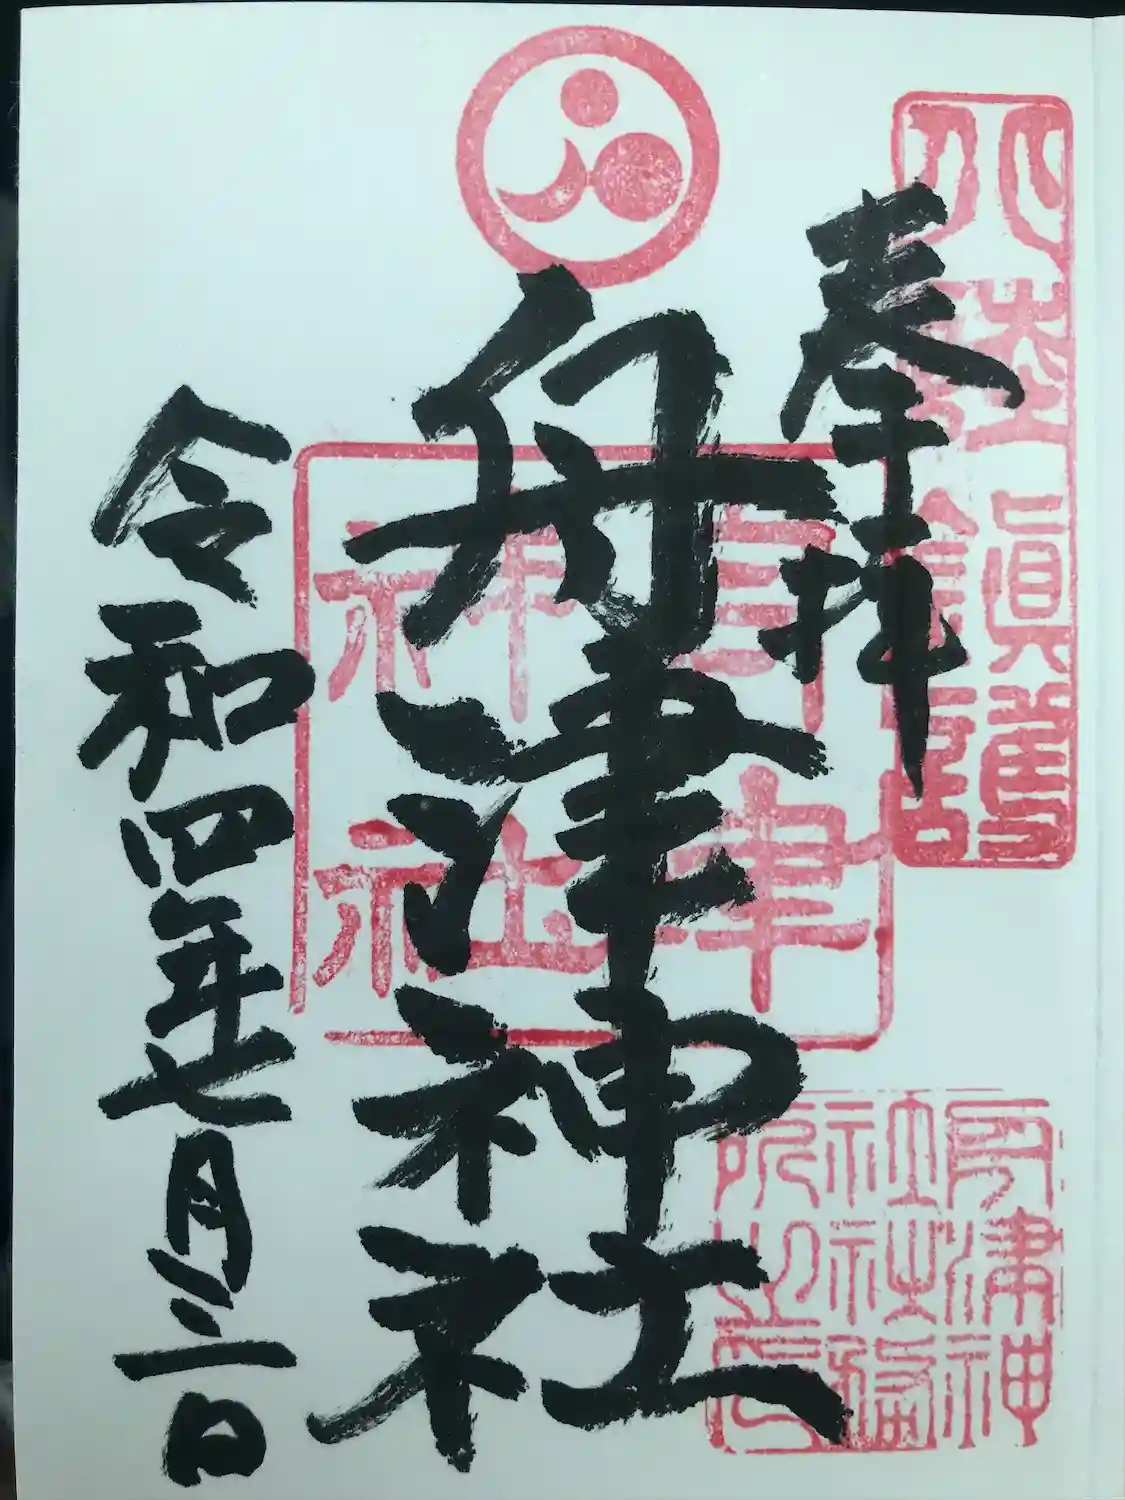 北陸鎭護
奉拝
舟津神社
舟津
神社
令和四年七月三日